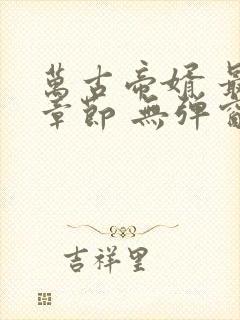 萬古帝婿 最
章節 無彈窗
吉祥里